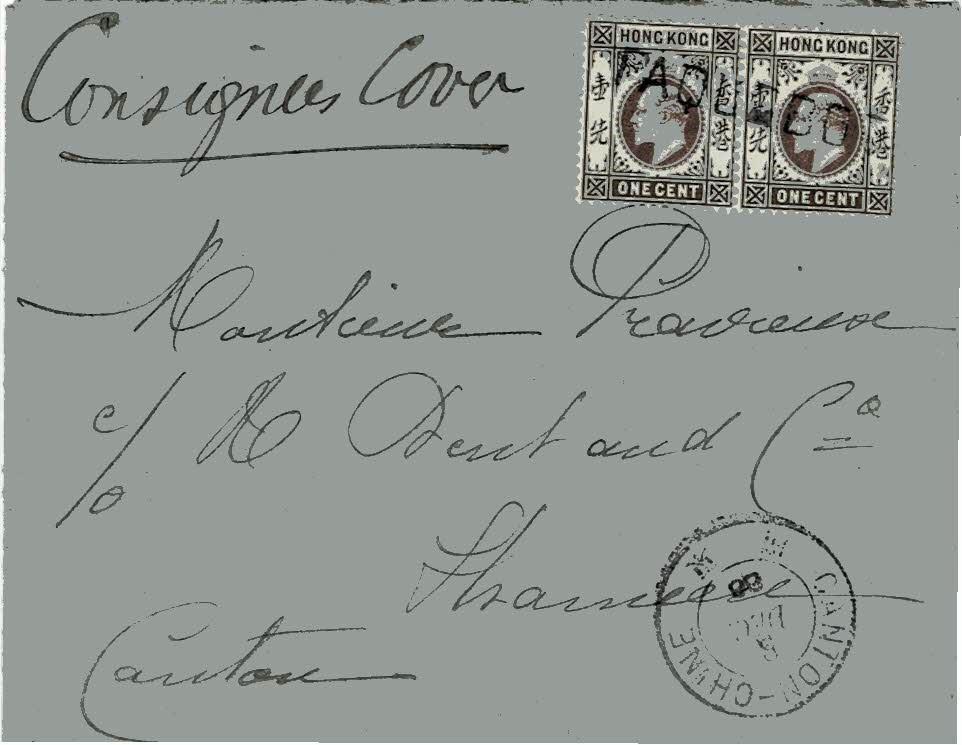 Consignees Cover
HONG KONG HONG KONG
壹先 香港 壹先 香港
PAQUEBOT
ONE CENT ONE CENT
Monsieur
c/o M Dent and Co
Shameen
Canton
CANTON-CHINE
DEC